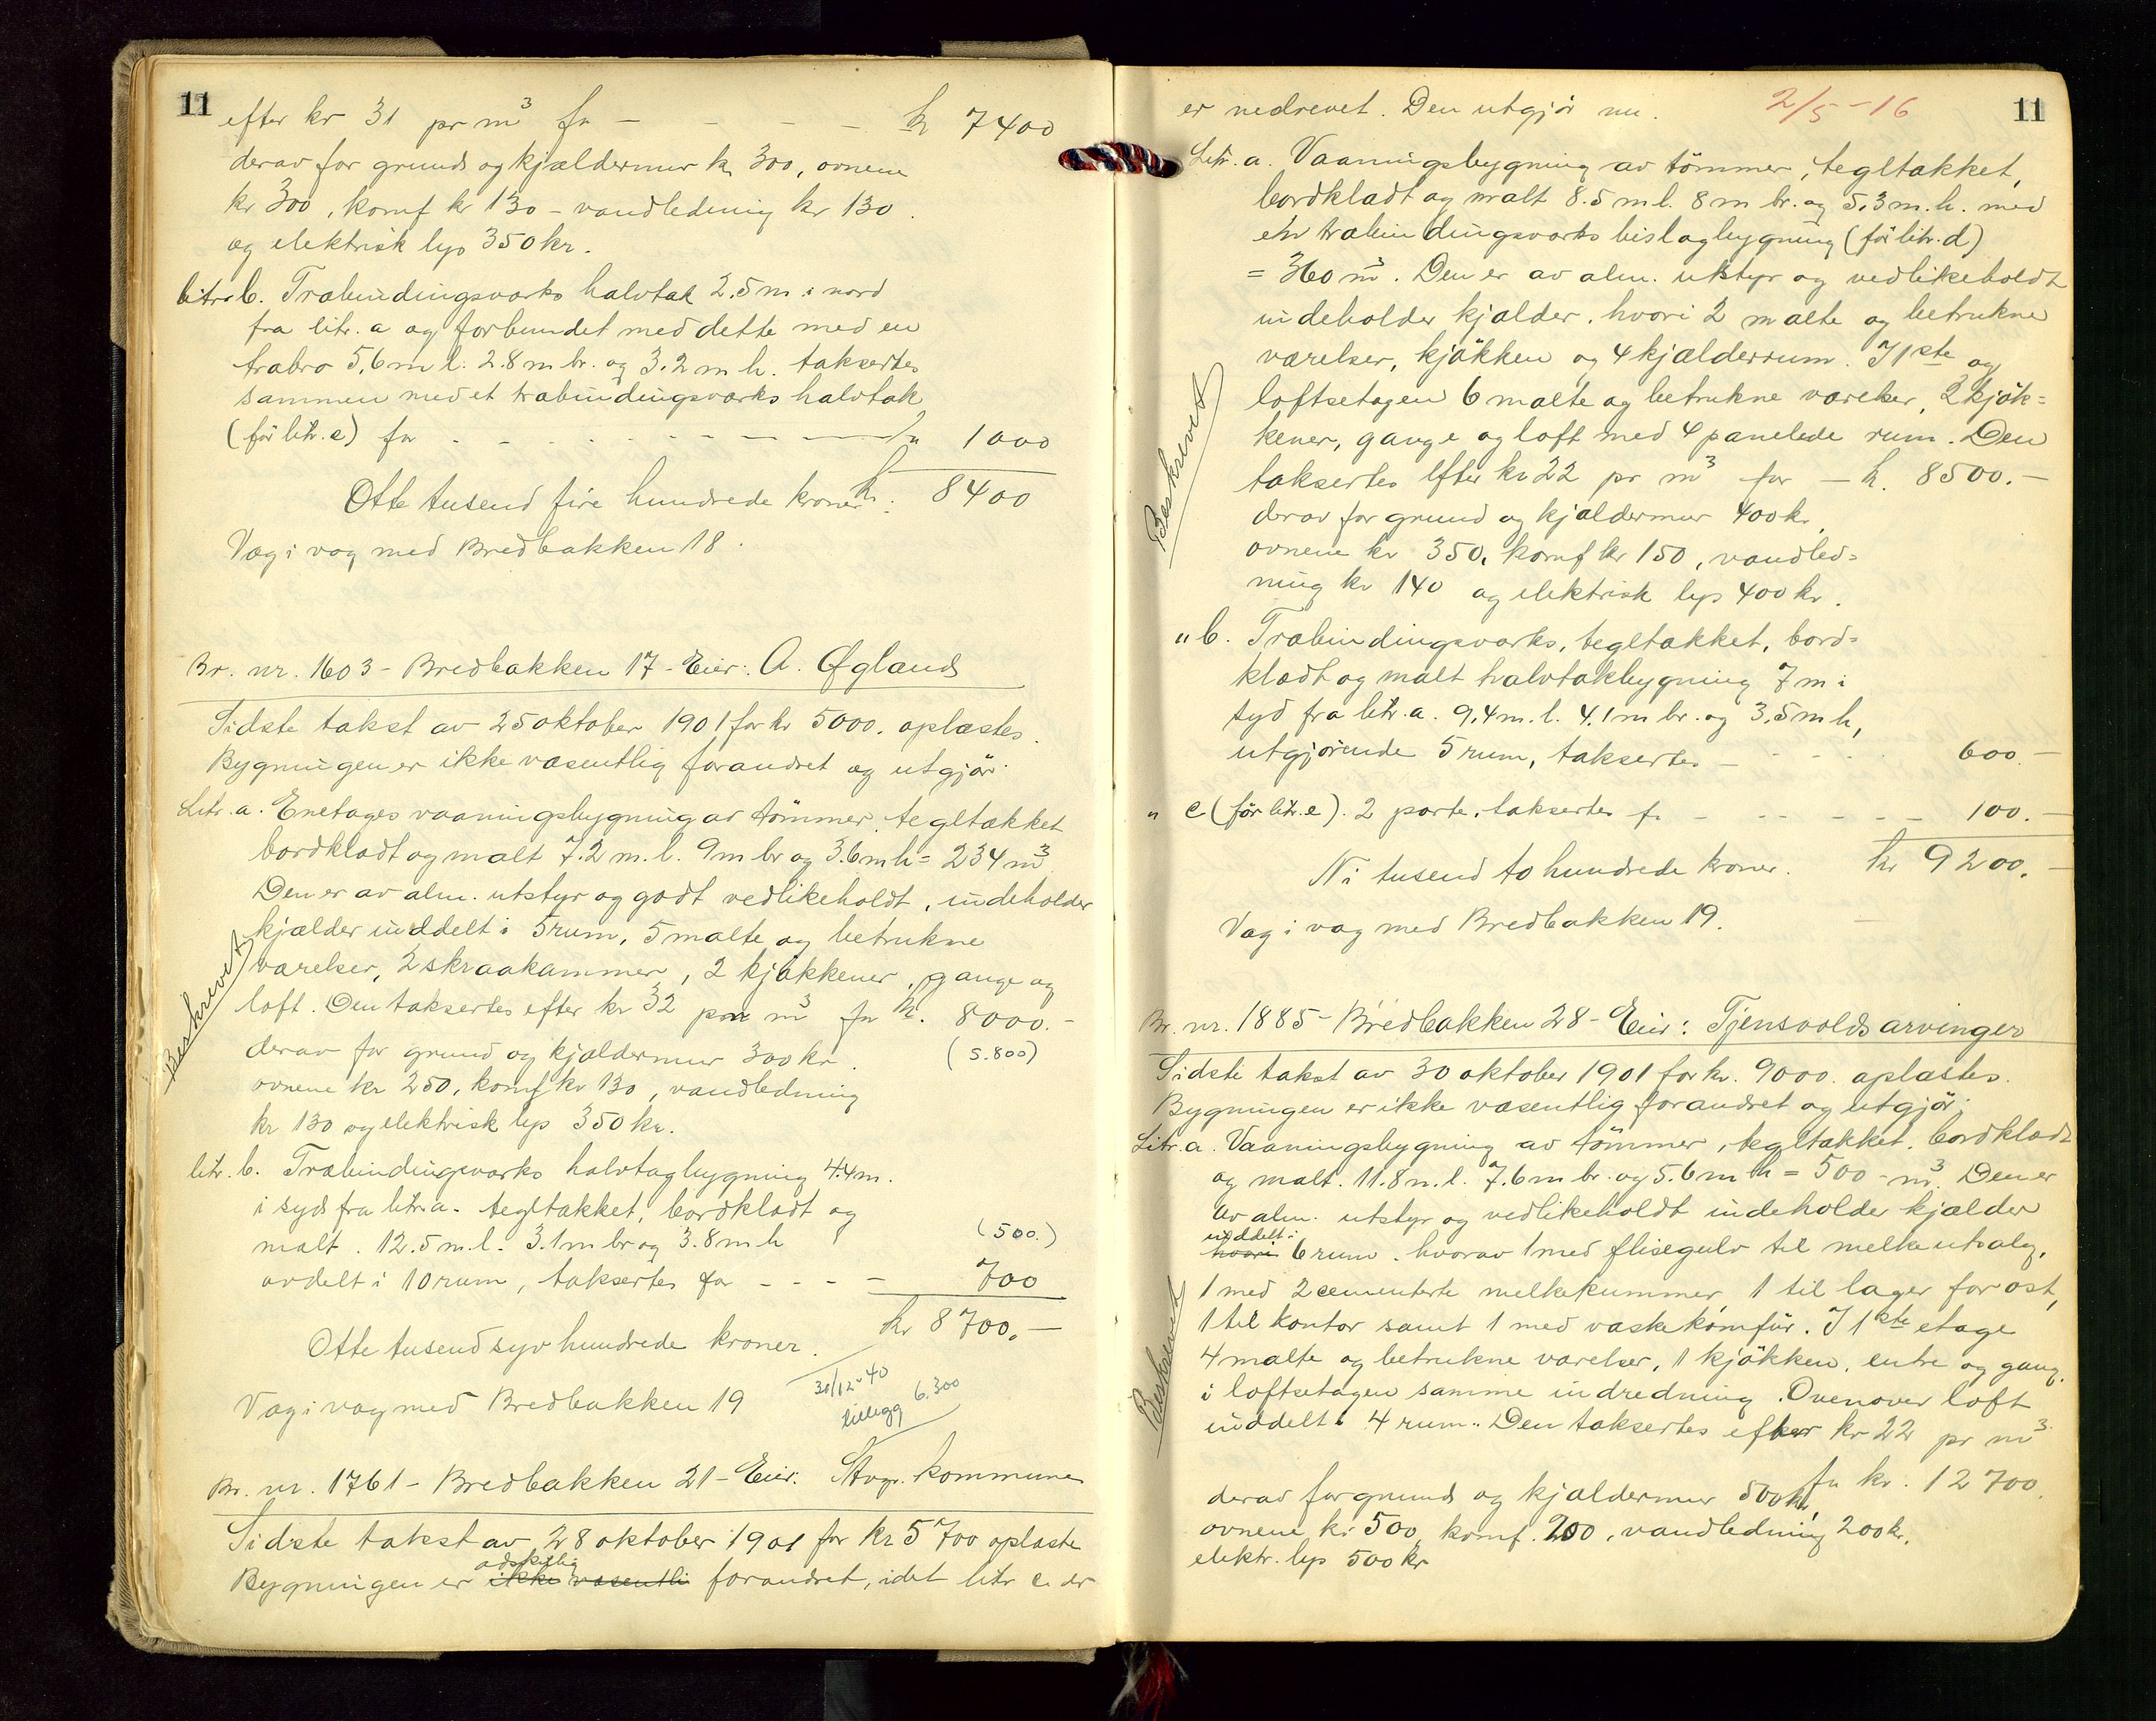 11
efter kr 31 pr m³ for — — — — kr 7400
derav for grund og kjældermur kr 300, ovnene
kr 300, komf kr 130 – vandledning kr 130.
og elektrisk lys 350 kr.
litr. b. Træbindingsværks halvtak 2.5 m i nord
fra litr. a og forbundet med dette med en
træbro 5.6 m l. 2.8 m br. og 3.2 m h. taksertes
sammen med et træbindingsværks halvtak
(för litr. c) for - - - - - — kr 1000
Otte tusend fire hundrede kroner kr. 8400
Væg i væg med Bredbakken 18.
Br. nr. 1603 – Bredbakken 17 – Eier: A. Øgland
Sidste takst av 25 oktober 1901 for kr 5000. oplæstes.
Bygningen er ikke væsentlig forandret og utgjör:
Litr. a. Enetages vaaningsbygning av tömmer, tegltækket
bordklædt og malt 7.2 m. l. 9 m br og 3.6 m h = 234 m³
Den er av alm. utstyr og godt vedlikeholdt, indeholder
kjælder inddelt i 5 rum, 5 malte og betrukne
værelser, 2 skraakammer, 2 kjökkener, gange og
loft. Den taksertes efter kr 32 pr m³ for kr. 8000.-
derav for grund og kjældermur 300 kr. (5.800)
ovnene kr 250, komf kr 130, vandledning
kr 130 og elektrisk lys 350 kr.
Beskrevet
litr. b. Træbindingsværks halvtagbygning 4.4 m.
i syd fra litr. a. tegltækket, bordklædt og
malt. 12.5 m. l. 3.1 m br og 3.8 m h (500.)
avdelt i 10 rum, taksertes for - - - — 700
Otte tusend syv hundrede kroner. kr 8700.—
Væg i væg med Bredbakken 19
31/12-40
tillegg 6.300
Br. nr. 1761 – Bredbakken 21 – Eier: Stvgr. kommune
Sidste takst av 28 oktober 1901 for kr 5700 oplæste
adskillig
Bygningen er ikke væsentli forandret, idet litr c. er
11
2/5-16
er nedrevet. Den utgjör nu.
Litr. a. Vaaningsbygning av tömmer, tegltækket,
bordklædt og malt 8.5 m l. 8 m br. og 5.3 m. h. med
en træbindingsværks bislagbygning (för litr. d)
= 360 m³. Den er av alm. utstyr og vedlikeholdt
indeholder kjælder, hvori 2 malte og betrukne
værelser, kjökken og 4 kjælderrum. I 1ste og
loftsetagen 6 malte og betrukne værelser, 2 kjök=
kener, gange og loft med 4 panelede rum. Den
taksertes efter kr 22 pr m³ for — kr. 8500.—
derav for grund og kjældermur 400 kr,
ovnene kr 350, komf kr 150, vandled=
ning kr 140 og elektrisk lys 400 kr.
Beskrevet
" b. Træbindingsværks, tegltækket, bord=
klædt og malt halvtakbygning 7 m i
syd fra litr. a. 9.4 m. l. 4.1 m br. og 3.5 m h,
utgjörende 5 rum, taksertes — - - - 600.—
" c (för litr. e). 2 porte, taksertes for - - - — 100.—
Ni tusend to hundrede kroner. kr 9200.—
Væg i væg med Bredbakken 19.
Br. nr. 1885 – Bredbakken 28 – Eier: Tjensvolds arvinger
Sidste takst av 30 oktober 1901 for kr. 9000. oplæstes.
Bygningen er ikke væsentlig forandret og utgjör:
Litr. a. Vaaningsbygning av tömmer, tegltækket, bordklædt
og malt. 11.8 m. l. 7.6 m br. og 5.6 m h = 500 m³. Den er
av alm. utstyr og vedlikeholdt indeholder kjælder
inddelt i
hvori 6 rum. hvorav 1 med flisegulv til melkeutsalg,
1 med 2 cementerte melkekummer, 1 til lager for ost,
1 til kontor samt 1 med vaskekomfür. I 1ste etage
4 malte og betrukne værelser, 1 kjökken, entre og gang,
i loftsetagen samme indredning. Ovenover loft
inddelt i 4 rum. Den taksertes efter kr 22 pr m³
for kr. 12700.
derav for grund og kjældermur 500 kr,
ovnene kr 500, komf. 200, vandledning 200 kr,
elektr. lys 500 kr
Beskrevet